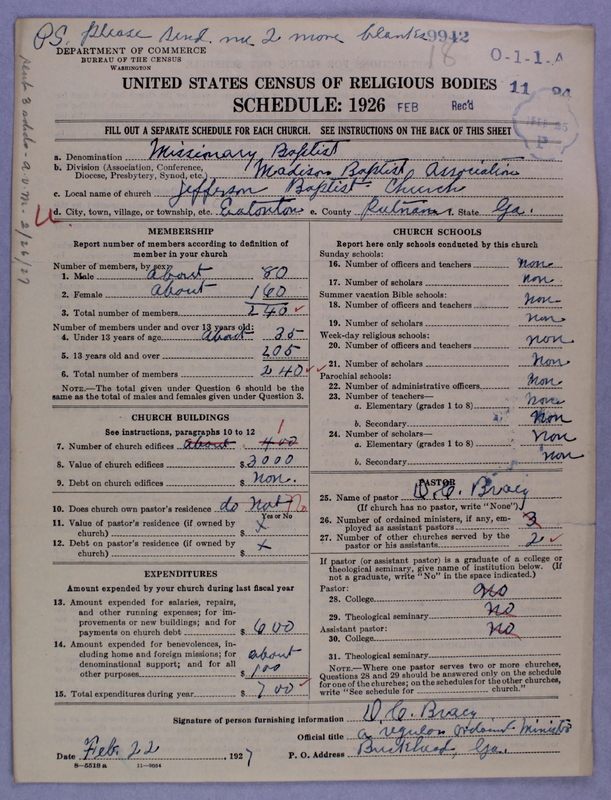 PS. Please send me 2 more blanks 9942
18
O-1-1-A
DEPARTMENT OF COMMERCE
BUREAU OF THE CENSUS
WASHINGTON
UNITED STATES CENSUS OF RELIGIOUS BODIES
11
SCHEDULE: 1926
FEB Rec'd
FILL OUT A SEPARATE SCHEDULE FOR EACH CHURCH. SEE INSTRUCTIONS ON THE BACK OF THIS SHEET
a. Denomination Missionary Baptist
b. Division (Association, Conference, Diocese, Presbytery, Synod, etc.) Madison Baptist Association
c. Local name of church Jefferson Baptist Church
d. City, town, village, or township, etc. Eatonton e. County Putnam f. State Ga.
MEMBERSHIP
Report number of members according to definition of
member in your church
Number of members, by sex:
1. Male about 80
2. Female about 160
3. Total number of members 240
Number of members under and over 13 years old:
4. Under 13 years of age about 35
5. 13 years old and over 205
6. Total number of members 240
NOTE.—The total given under Question 6 should be the
same as the total of males and females given under Question 3.
CHURCH BUILDINGS
See instructions, paragraphs 10 to 12
1
7. Number of church edifices about 400
8. Value of church edifices $ 3000
9. Debt on church edifices $ Non.
10. Does church own pastor's residence do not No
Yes or No
11. Value of pastor's residence (if owned by
church) $ x
12. Debt on pastor's residence (if owned by
church) $ x
EXPENDITURES
Amount expended by your church during last fiscal year
13. Amount expended for salaries, repairs,
and other running expenses; for im-
provements or new buildings; and for
payments on church debt $ 600
14. Amount expended for benevolences, in-
cluding home and foreign missions; for
denominational support; and for all
other purposes $ about 100
15. Total expenditures during year $ 700
CHURCH SCHOOLS
Report here only schools conducted by this church
Sunday schools:
16. Number of officers and teachers non
17. Number of scholars non
Summer vacation Bible schools:
18. Number of officers and teachers non
19. Number of scholars non
Week-day religious schools:
20. Number of officers and teachers non
21. Number of scholars non
Parochial schools:
22. Number of administrative officers non
23. Number of teachers—
a. Elementary (grades 1 to 8) non
b. Secondary non
24. Number of scholars—
a. Elementary (grades 1 to 8) non
b. Secondary non
PASTOR
25. Name of pastor D. C. Bracy
(If church has no pastor, write "None")
26. Number of ordained ministers, if any, em-
ployed as assistant pastors 3
27. Number of other churches served by the
pastor or his assistants 2
If pastor (or assistant pastor) is a graduate of a college or
theological seminary, give name of institution below. (If
not a graduate, write "No" in the space indicated.)
Pastor:
28. College No
29. Theological seminary No
Assistant pastor:
30. College No
31. Theological seminary
NOTE.—Where one pastor serves two or more churches,
Questions 28 and 29 should be answered only on the schedule
for one of the churches; on the schedules for the other churches,
write "See schedule for church."
Signature of person furnishing information D. C. Bracy
Official title a regular ordaint Minister
Date Feb. 22, 1927 P. O. Address Buckhead, Ga.
8—5518 a